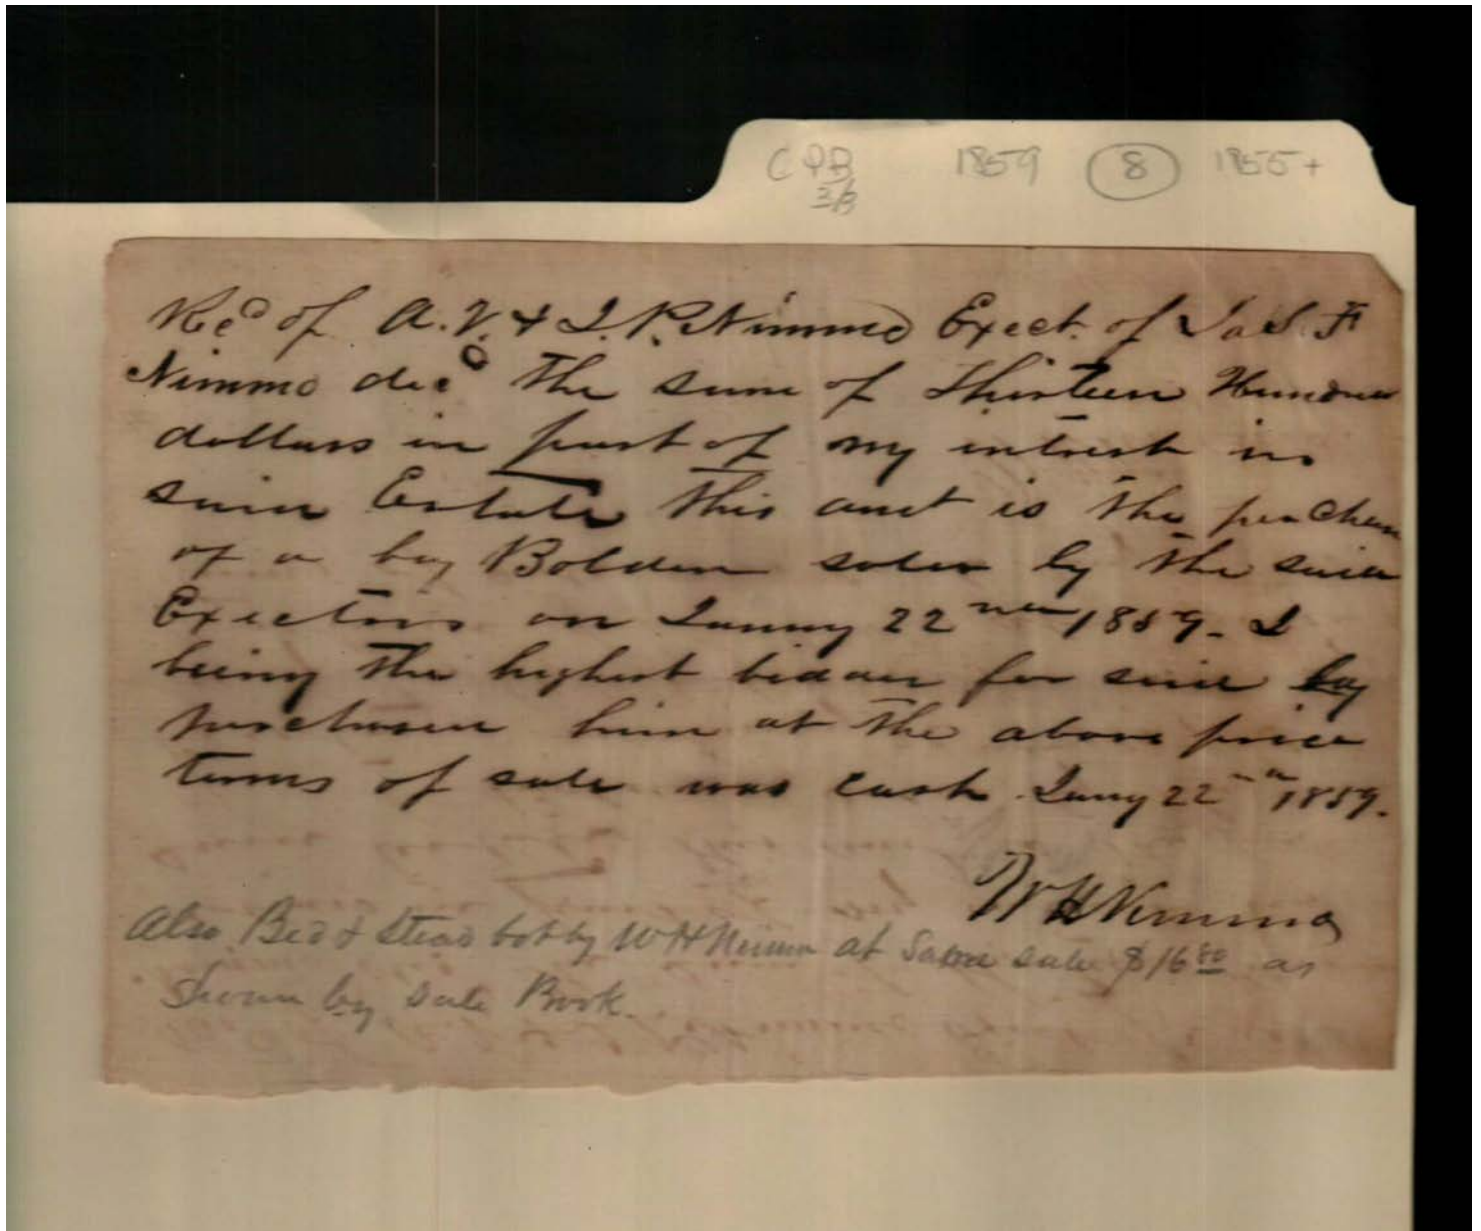 CPB 1859 8 1855+
3/3
Recd of A. V. & J. P. Nimmo Exect. of Jas. F
Nimmo decd the sum of Thirteen Hundred
dollars in part of my intrest in
said Estate this amt is the purchase
of a boy Bolden sold by the said
Exectors on Janry 22nd 1859. I
being the highest bidder for said boy
purchased him at the above price
terms of sale was cash Jany 22nd 1859.
W H Nimmo
Also Bed & Stead bot by W H Nimmo at Same sale $16 as
Shown by Sale Book.